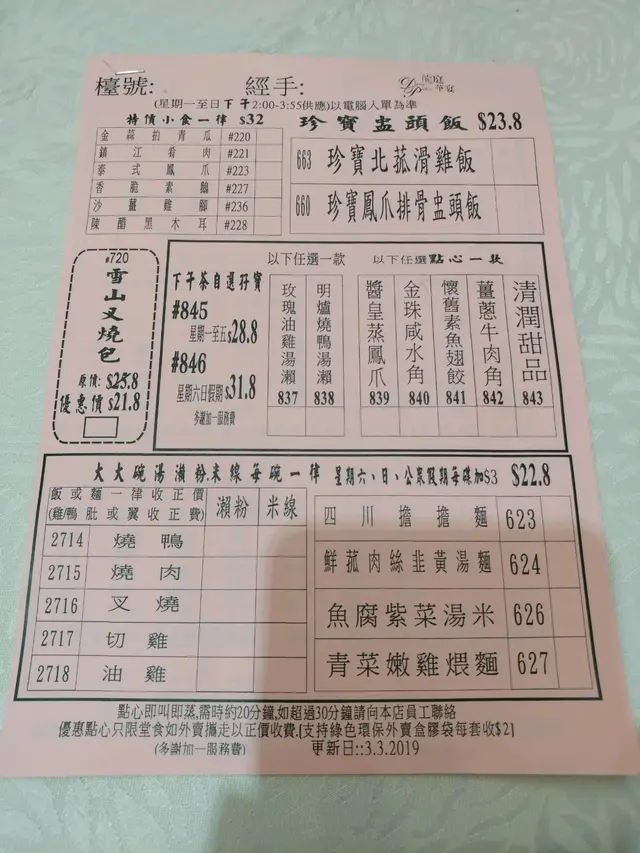 檯號:
經手:
龍庭
華宴
(星期一至日下午2:00-3:55供應)以電腦入單為準
特價小食一律 $32
金蒜拍青瓜 #220
鎮江肴肉 #221
泰式鳳爪 #223
香脆素鵝 #227
沙薑雞腳 #236
陳醋黑木耳 #228
珍寶盅頭飯 $23.8
663 珍寶北菰滑雞飯
660 珍寶鳳爪排骨盅頭飯
#720
雪山叉燒包
原價: $25.8
優惠價 $21.8
下午茶自選孖寶
#845
星期一至五$28.8
#846
星期六日假期$31.8
多謝加一服務費
以下任選一款
玫瑰油雞湯瀨 837
明爐燒鴨湯瀨 838
以下任選點心一款
醬皇蒸鳳爪 839
金珠咸水角 840
懷舊素魚翅餃 841
薑蔥牛肉角 842
清潤甜品 843
大大碗湯瀨粉米線每碗一律 星期六、日、公眾假期每碟加$3 $22.8
飯或麵一律收正價
(雞/鴨 肶或翼收正價)
瀨粉 米線
2714 燒鴨
2715 燒肉
2716 叉燒
2717 切雞
2718 油雞
四川擔擔麵 623
鮮菰肉絲韭黃湯麵 624
魚腐紫菜湯米 626
青菜嫩雞煨麵 627
點心即叫即蒸,需時約20分鐘,如超過30分鐘請向本店員工聯絡
優惠點心只限堂食如外賣攜走以正價收費.[支持綠色環保外賣盒膠袋每套收$2]
(多謝加一服務費)
更新日::3.3.2019